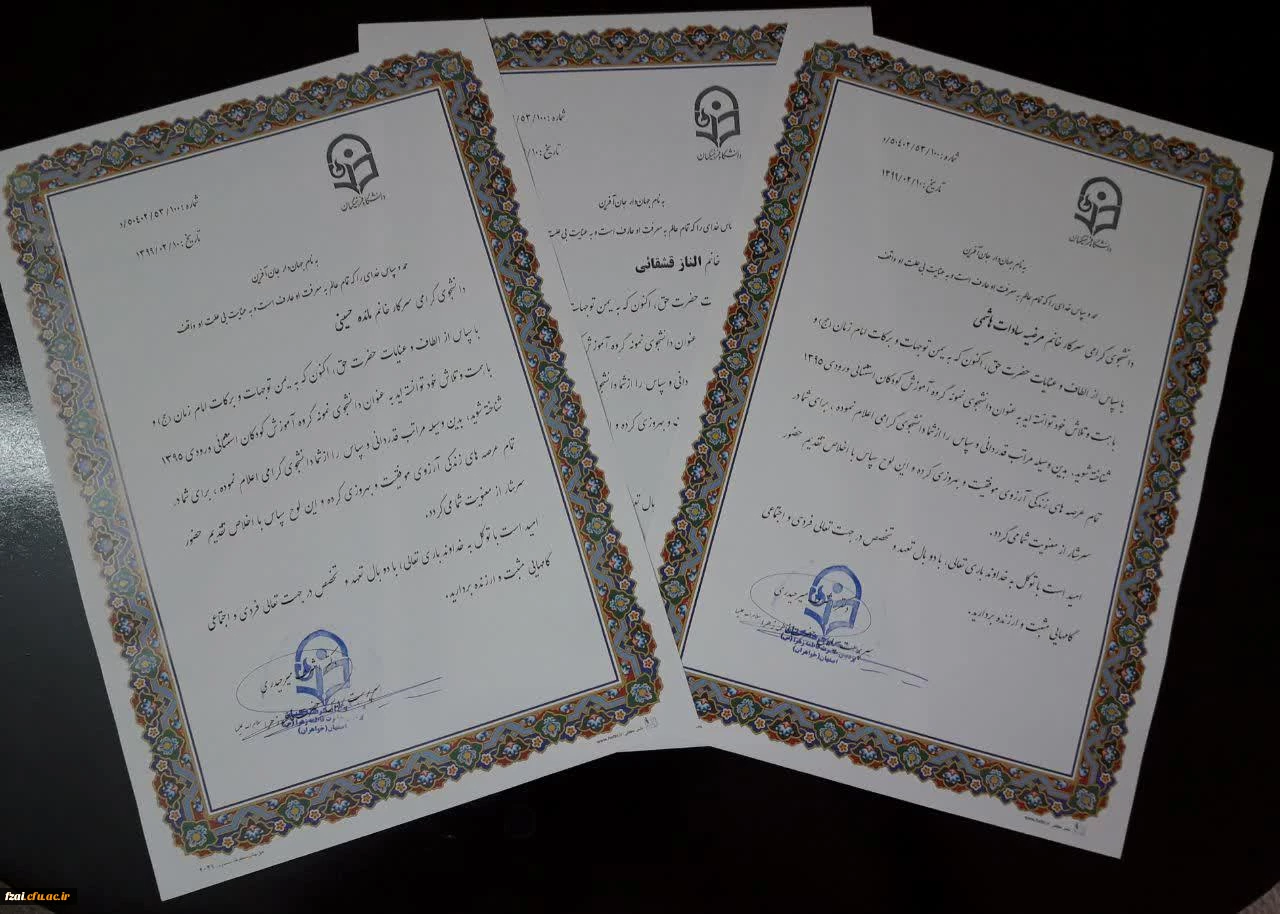 دانشگاه فرهنگیان
شماره: ۵۰۴۰۲/۵۳/۱۰۰/د
تاریخ: ۱۳۹۹/۰۲/۱۰
به نام جهان‌دار جان‌آفرین
حمد و سپاس خدای را که تمام عالم به معرفت او عارف است و به عنایت بی علت او واقف
دانشجوی گرامی سرکار خانم مائده حسینی
با سپاس از الطاف و عنایات حضرت حق، اکنون که به یمن توجهات و برکات امام زمان (عج) و
با همت و تلاش خود توانسته اید به عنوان دانشجوی نمونه گروه آموزش کودکان استثنایی ورودی ۱۳۹۵
شناخته شوید، بدین وسیله مراتب قدردانی و سپاس را از شما دانشجوی گرامی اعلام نموده، برای شما در
تمام عرصه های زندگی آرزوی موفقیت و بهروزی کرده و این لوح سپاس با اخلاص تقدیم حضور
سرشار از معنویت شما می گردد.
امید است با توکل به خداوند باری تعالی، با دو بال تعهد و تخصص در جهت تعالی فردی و اجتماعی
گامهایی مثبت و ارزنده بردارید.
میرحیدری
فاطمه زهرا (س)
اصفهان (خواهران)
دانشگاه فرهنگیان
شماره: ۱۰۰/۵۳/
تاریخ: ۱۰/
به نام جهان‌دار جان‌آفرین
پاس خدای را که تمام عالم به معرفت او عارف است و به عنایت بی علت
خانم الناز قشقائی
ت حضرت حق، اکنون که به یمن توجهات
عنوان دانشجوی نمونه گروه آموزش
دانی و سپاس را از شما دانشجو
و بهروزی کرده و
بال تعه
دانشگاه فرهنگیان
شماره: ۵۰۴۰۲/۵۳/۱۰۰/د
تاریخ: ۱۳۹۹/۰۲/۱۰
به نام جهان‌دار جان‌آفرین
حمد و سپاس خدای را که تمام عالم به معرفت او عارف است و به عنایت بی علت او واقف
دانشجوی گرامی سرکار خانم مرضیه سادات هاشمی
با سپاس از الطاف و عنایات حضرت حق، اکنون که به یمن توجهات و برکات امام زمان (عج) و
با همت و تلاش خود توانسته اید به عنوان دانشجوی نمونه گروه آموزش کودکان استثنایی ورودی ۱۳۹۵
شناخته شوید. بدین وسیله مراتب قدردانی و سپاس را از شما دانشجوی گرامی اعلام نموده، برای شما در
تمام عرصه های زندگی آرزوی موفقیت و بهروزی کرده و این لوح سپاس با اخلاص تقدیم حضور
سرشار از معنویت شما می گردد.
امید است با توکل به خداوند باری تعالی، با دو بال تعهد و تخصص در جهت تعالی فردی و اجتماعی
گامهایی مثبت و ارزنده بردارید.
میرحیدری
فاطمه زهرا (س)
اصفهان (خواهران)
fzai.cfu.ac.ir